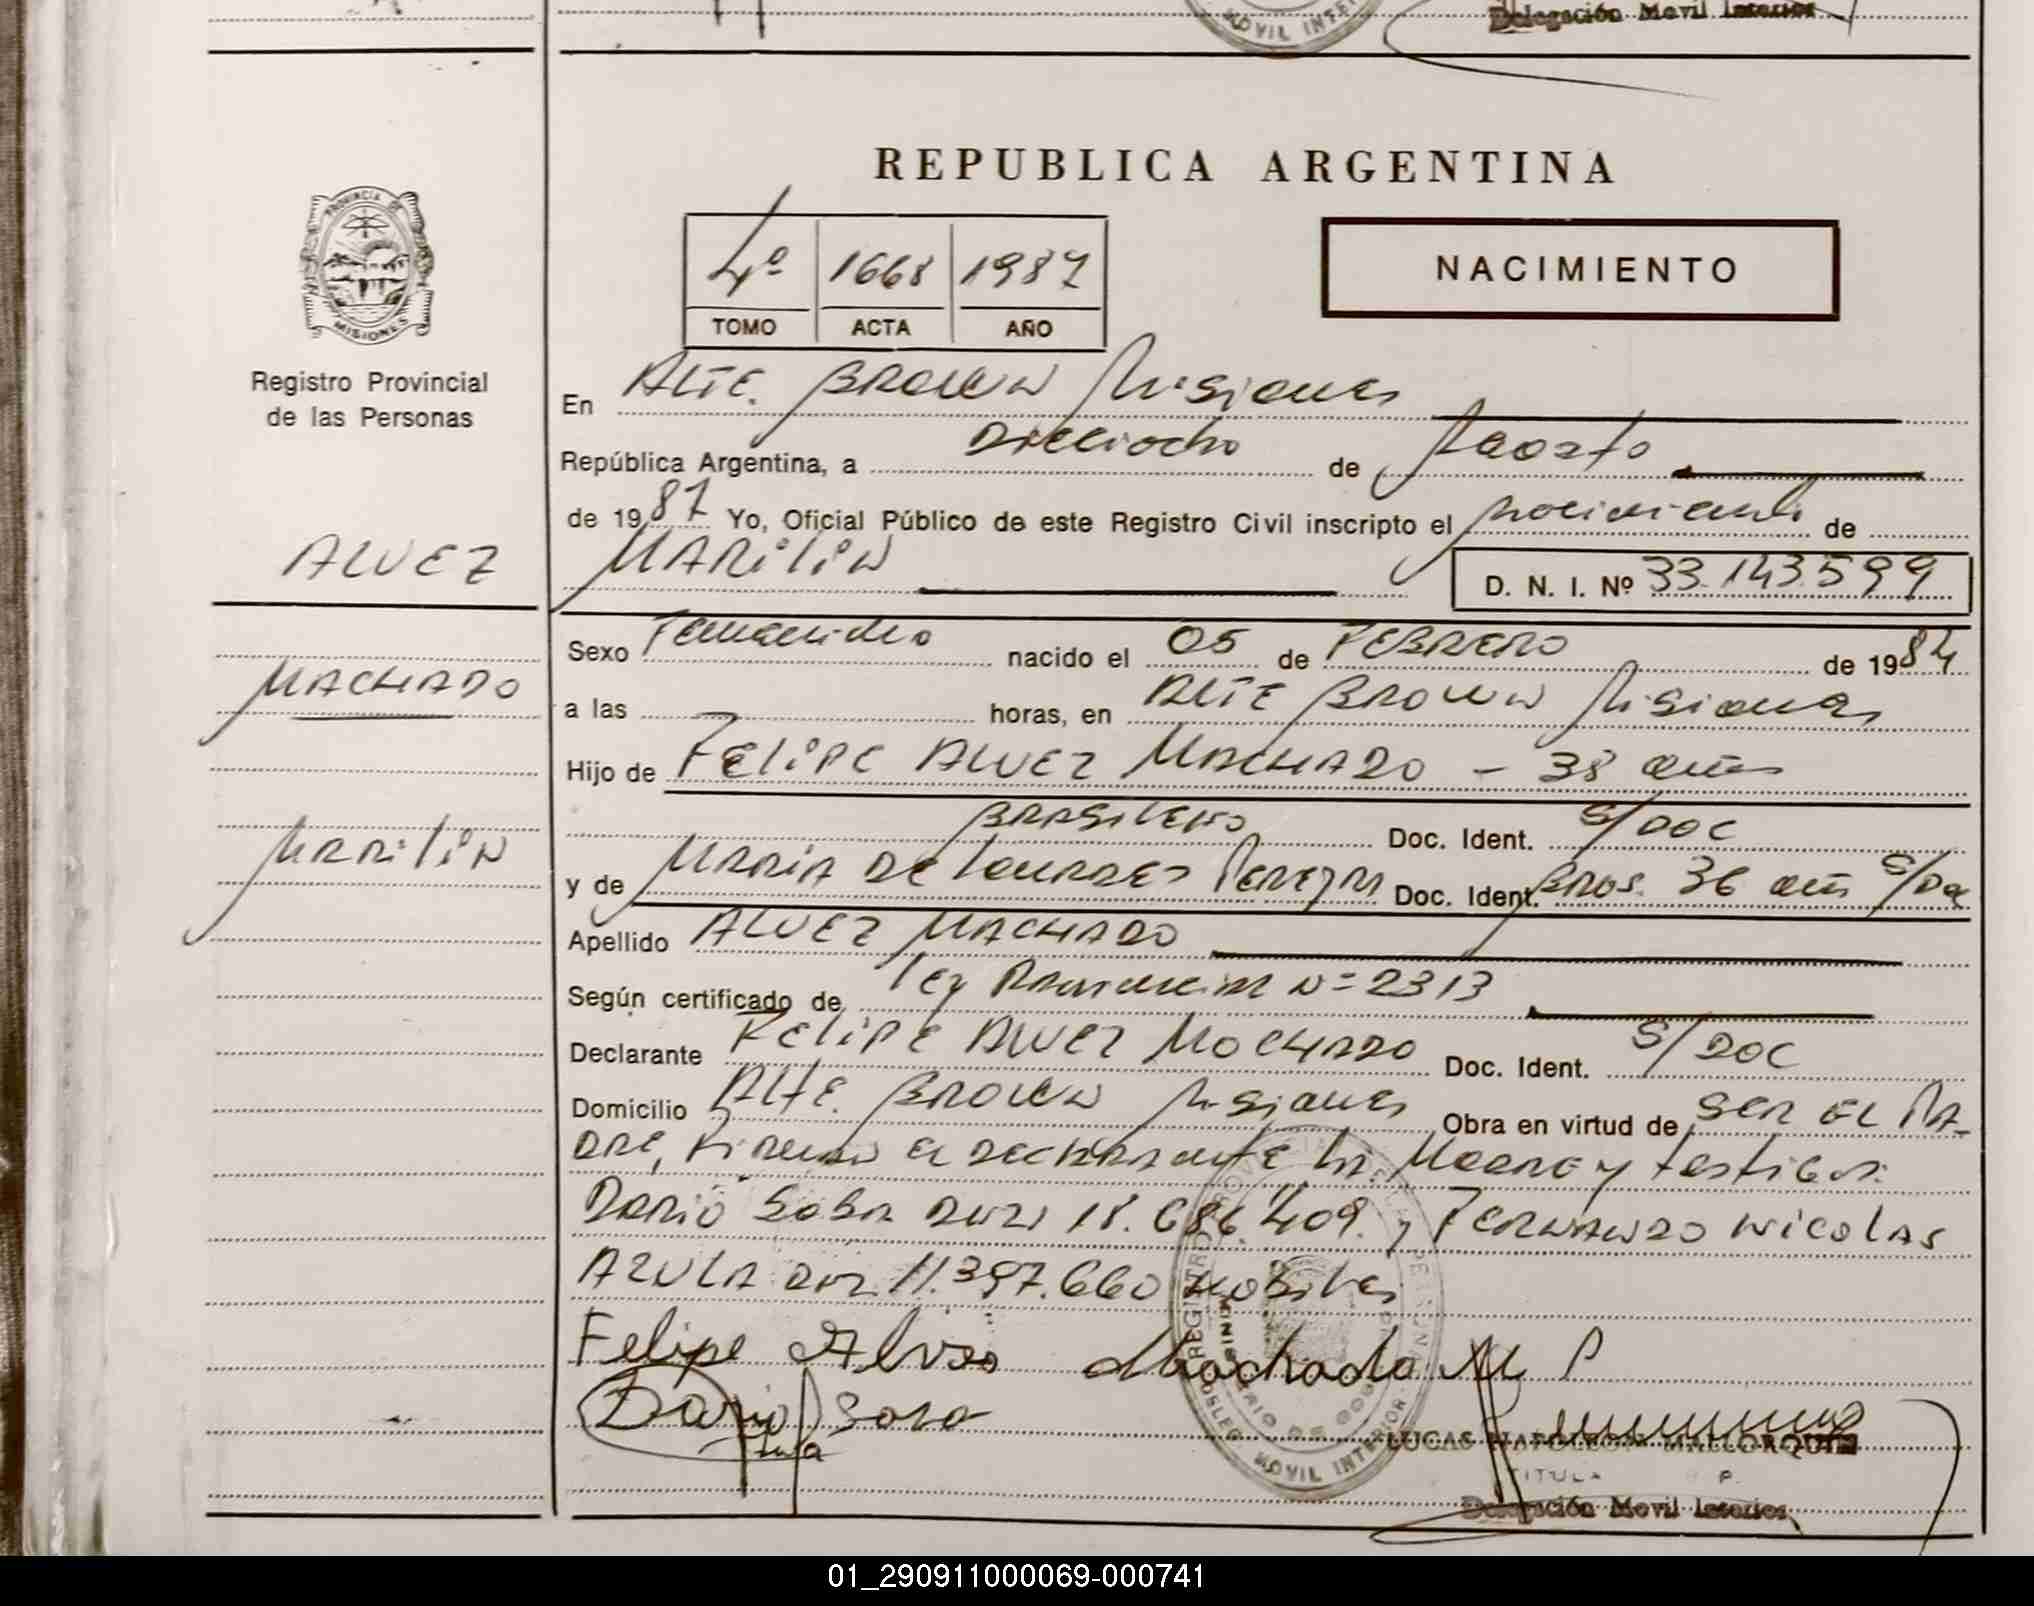 MOVIL INTE
Delegación Movil Interior
REPUBLICA ARGENTINA
PROVINCIA DE
MISIONES
4º 1668 1987
TOMO ACTA AÑO
NACIMIENTO
Registro Provincial
de las Personas
En ALTE. BROWN Misiones
República Argentina, a Dieciocho de Agosto
de 1987 Yo, Oficial Público de este Registro Civil inscripto el nacimiento de
ALVEZ
MARILIN D. N. I. Nº 33.143.599
Sexo Femenino nacido el 05 de FEBRERO de 1984
MACHADO
a las — horas, en ALTE BROWN Misiones
Hijo de FELIPE ALVEZ MACHADO - 38 años
BRASILEÑO Doc. Ident. S/DOC
MARILIN
y de MARIA DE LOURDES Doc. Ident. BRAS. 36 años S/Doc
Apellido ALVEZ MACHADO
Según certificado de Ley Provincial Nº 2313
Declarante FELIPE ALVEZ MACHADO Doc. Ident. S/DOC
Domicilio Alte. BROWN Misiones Obra en virtud de SER EL PA-
DRE, Firman el DECLARANTE la Madre y testigos:
DARIO SOSA DNI 18.686.409. y FERNANDO NICOLAS
AZULA DNI 11.397.660 Hobiles
Felipe Alves Machado M P
Dario Sosa
LUCAS NAPOLEON MALLORQUIN
TITULA P.
MOVIL INTERIOR
Delegación Movil Interior
01_290911000069-000741